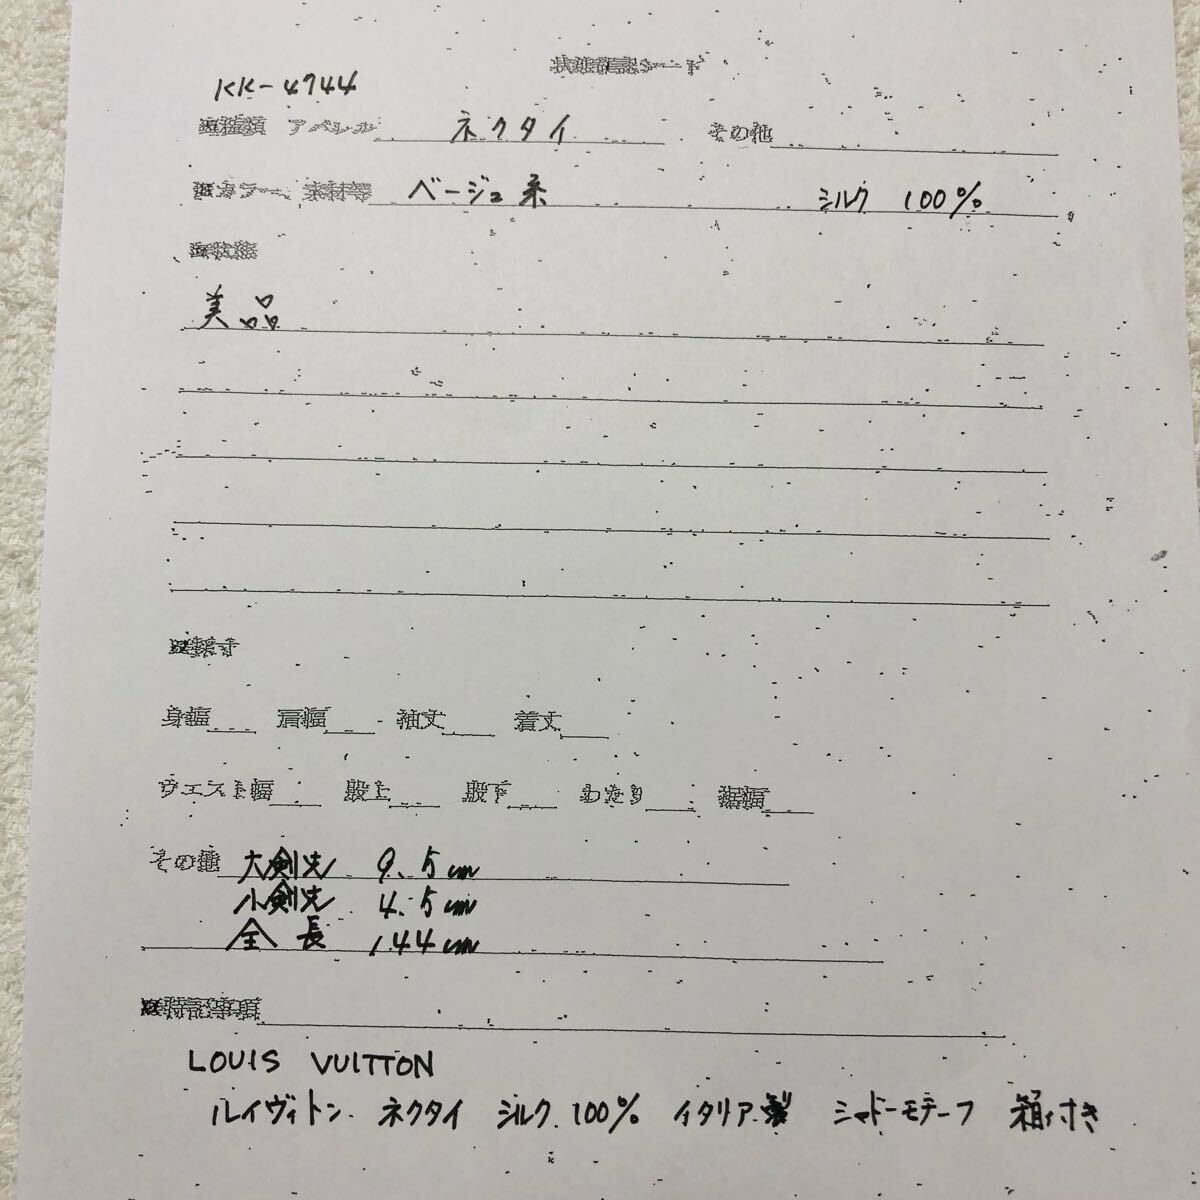 状態確認シート
KK-4744
種類 アパレル ネクタイ その他
カラー、素材等 ベージュ系 シルク 100%
状態
美品
採寸
身幅 肩幅 袖丈 着丈
ウエスト幅 股上 股下 わたり 裾幅
その他 大剣先 9.5cm
小剣先 4.5cm
全長 144cm
特記事項
LOUIS VUITTON
ルイヴィトン ネクタイ シルク 100% イタリア製 シャドーモチーフ 箱付き